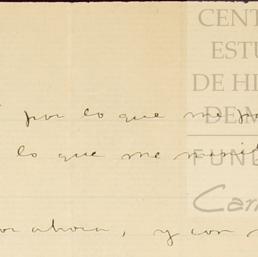 CENT
ESTU
DE HI
DE M
FUN
Car
por lo que me pa
lo que me
or ahora, y con